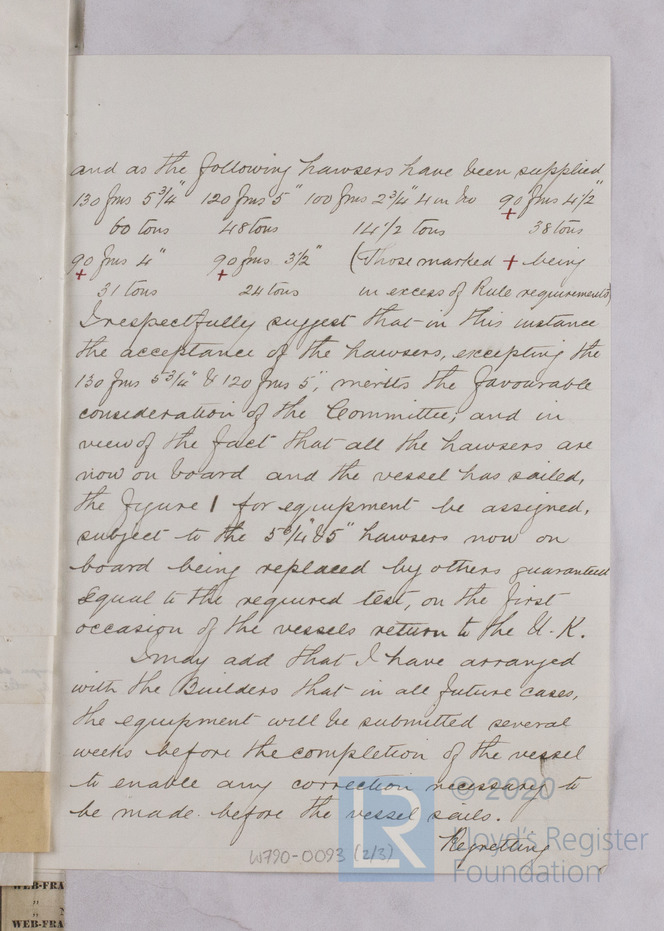 and as the following hawsers have been supplied
130 fms 5 3/4" 120 fms 5" 100 fms 2 3/4" 4 in No 90 fms 4 1/2"
+
60 tons 48 tons 14 1/2 tons 38 tons
90 fms 4" 90 fms 3 1/2" (Those marked + being
+ +
31 tons 24 tons in excess of Rule requirements)
I respectfully suggest that in this instance
the acceptance of the hawsers, excepting the
130 fms 5 3/4" & 120 fms 5", merits the favourable
consideration of the Committee, and in
view of the fact that all the hawsers are
now on board and the vessel has sailed,
the figure 1 for equipment be assigned,
subject to the 5 3/4" & 5" hawsers now on
board being replaced by others guaranteed
equal to the required test, on the first
occasion of the vessels return to the U.K.
I may add that I have arranged
with the Builders that in all future cases,
the equipment will be submitted several
weeks before the completion of the vessel
to enable any correction necessary to
be made before the vessel sails.
Regretting
W790-0093 (2/3)
LR
© 2020
Lloyd's Register
Foundation
WEB-FRA
"
"
WEB-FRA